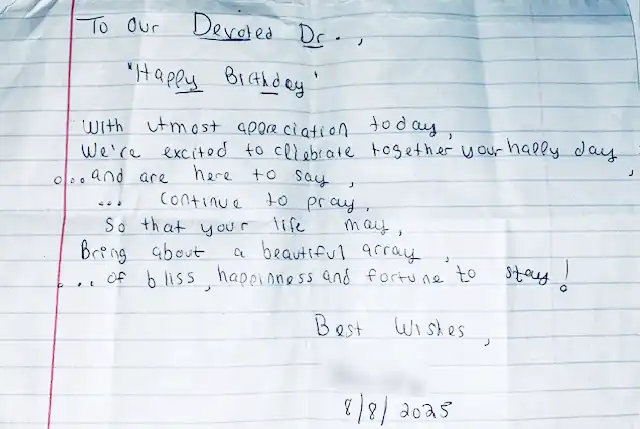 To Our Devoted Dr.,
"Happy Birthday"
With utmost appreciation today,
We're excited to cllebrate together your happy day,
...and are here to say,
... continue to pray,
So that your life may,
Bring about a beautiful array,
... of bliss, happinness and fortune to stay!
Best Wishes,
8/8/2025